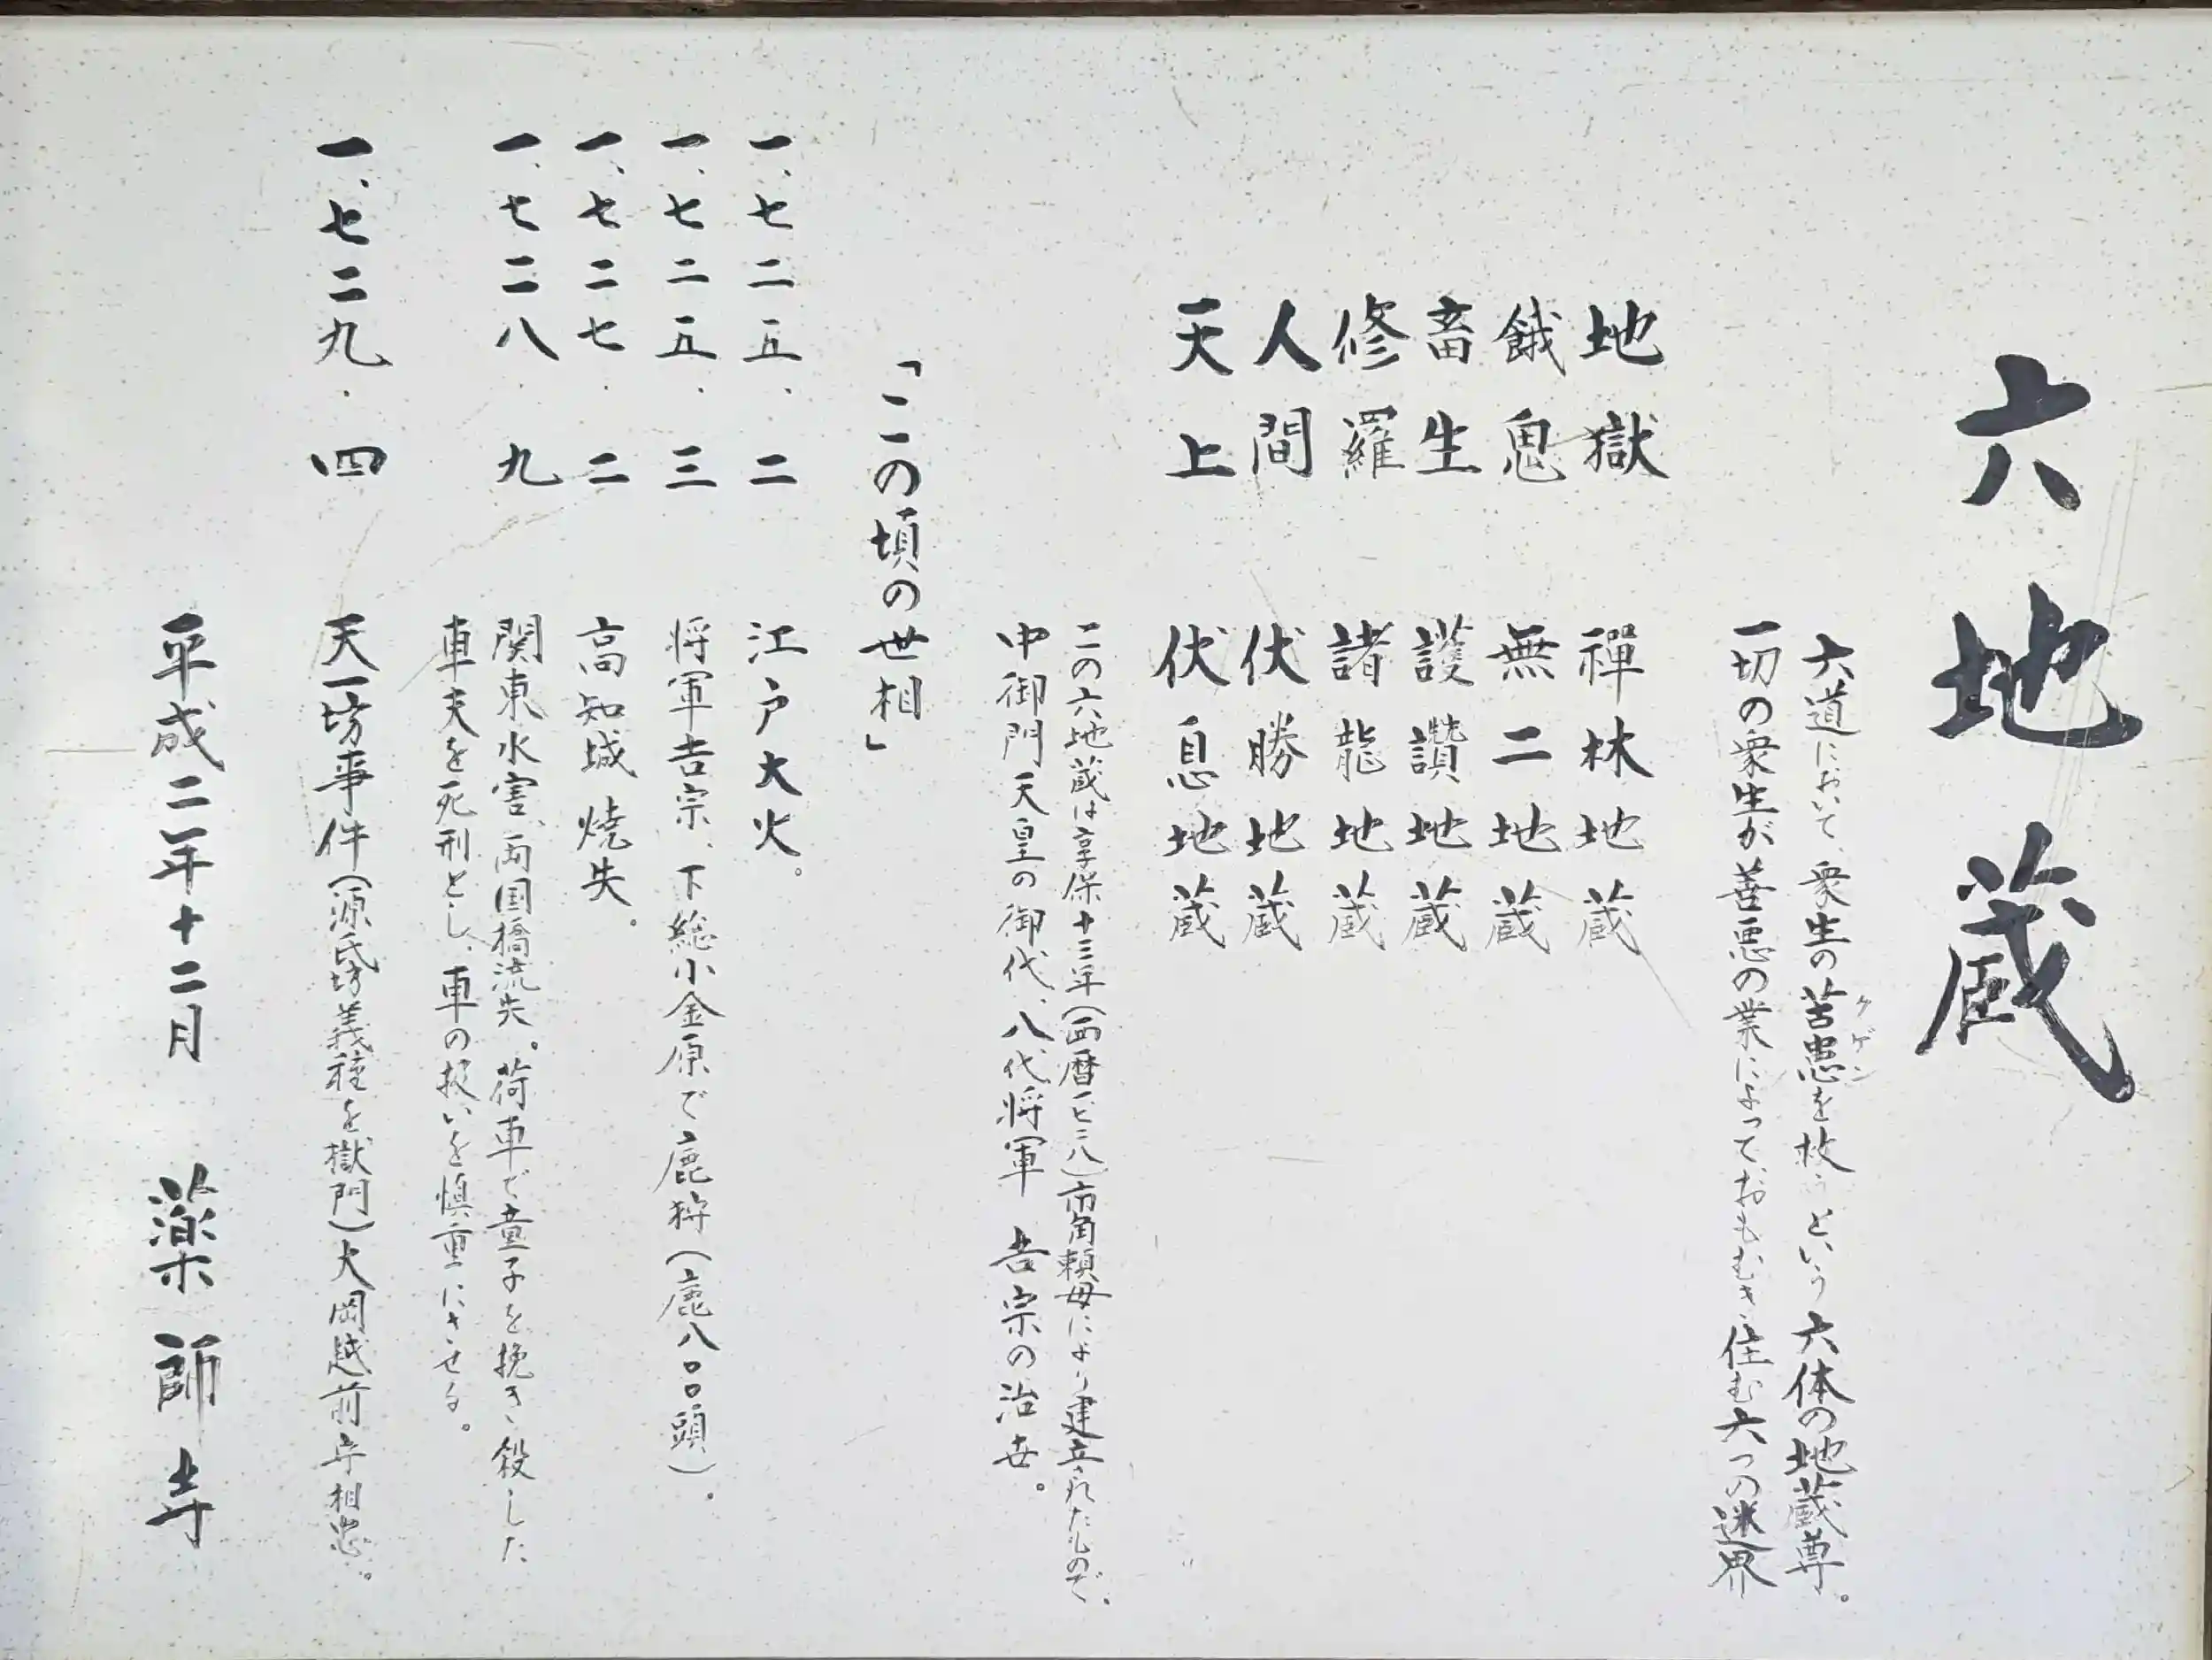 六地蔵
六道において、衆生の苦患を救うという六体の地蔵尊。
クゲン
一切の衆生が善悪の業によって、おもむき住む六つの迷界
地獄 禪林地蔵
餓鬼 無二地蔵
畜生 護讚地蔵
修羅 諸龍地蔵
人間 伏勝地蔵
天上 伏息地蔵
この六地蔵は享保十三年（西暦一七二八）市角頼母により建立されたもので、
中御門天皇の御代、八代将軍 吉宗の治世。
「この頃の世相」
一、七二五、二 江戸大火。
一、七二五、三 将軍吉宗、下総小金原で鹿狩（鹿八〇〇頭）。
一、七二七．二 高知城焼失。
一、七二八．九 関東水害、両国橋流失。荷車で童子を挽き殺した
車夫を死刑とし、車の扱いを慎重にさせる。
一、七二九．四 天一坊事件（源氏坊義種を獄門）大岡越前守相忠。
平成二年十二月 薬師寺